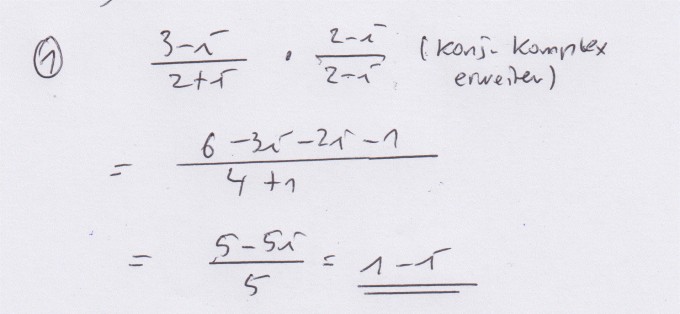 ① (3-i)/(2+i) · (2-i)/(2-i) (konj. komplex
erweitern)
= (6-3i-2i-1)/(4+1)
= (5-5i)/5 = 1-i